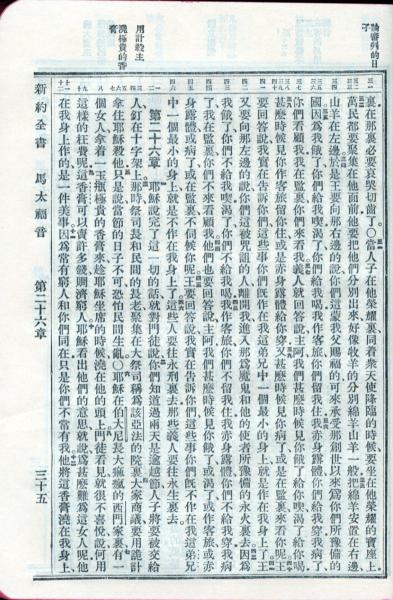 論審判的日子
裏在那裏必要哀哭切齒了〇當人子在他榮耀裏同着衆天使降臨的時候要坐在他榮耀的寶座上
萬民都要聚集在他面前他要把他們分別出來好像牧羊的分別綿羊山羊一般把綿羊安置在右邊
山羊在左邊於是王要向那右邊的說你們這蒙我父賜福的可來承受那創世以來爲你們所豫備的
國因爲我餓了你們給我喫渴了你們給我喝我作客旅你們留我住我赤身露體你們給我穿我病了
你們看顧我我在監裏你們來看我義人就回答說主阿我們甚麼時候見你餓了給你喫渴了給你喝
甚麼時候見你作客旅留你住或是赤身露體給你穿又甚麼時候見你病了或是在監裏來看你呢王
要回答說我實在告訴你們這些事你們既作在我這弟兄中一個最小的身上就是作在我身上了王
又要向那左邊的說你們這被咒詛的人離開我進入那爲魔鬼和他的使者所豫備的永火裏去因爲
我餓了你們不給我喫渴了你們不給我喝我作客旅你們不留我住我赤身露體你們不給我穿我病
了我在監裏你們不來看顧我他們也要回答說主阿我們甚麼時候見你餓了或渴了或作客旅或赤
身露體或病了或在監裏不伺候你呢王要回答說我實在告訴你們這些事你們既不作在我這弟兄
中一個最小的身上就是不作在我身上了這些人要往永刑裏去那些義人要往永生裏去
第二十六章 耶穌說完了這一切的話就對門徒說你們知道過兩天是逾越節人子將要被交給
用計殺主
人釘在十字架上那時祭司長和民間的長老聚集在大祭司稱爲該亞法的院裏大家商議要用詭計
拿住耶穌殺他只是說當節的日子不可恐怕民間生亂〇耶穌在伯大尼長大痲瘋的西門家裏有一
澆極貴的香膏
個女人拿着一玉瓶極貴的香膏來趁耶穌坐席的時候澆在他的頭上門徒看見就很不喜悅說何用
這樣的枉費呢這香膏可以賣許多錢賙濟窮人耶穌看出他們的意思就說爲甚麼難爲這女人呢他
在我身上作的是一件美事因爲常有窮人和你們同在只是你們不常有我他將這香膏澆在我身上
新約全書 馬太福音 第二十六章 三十五